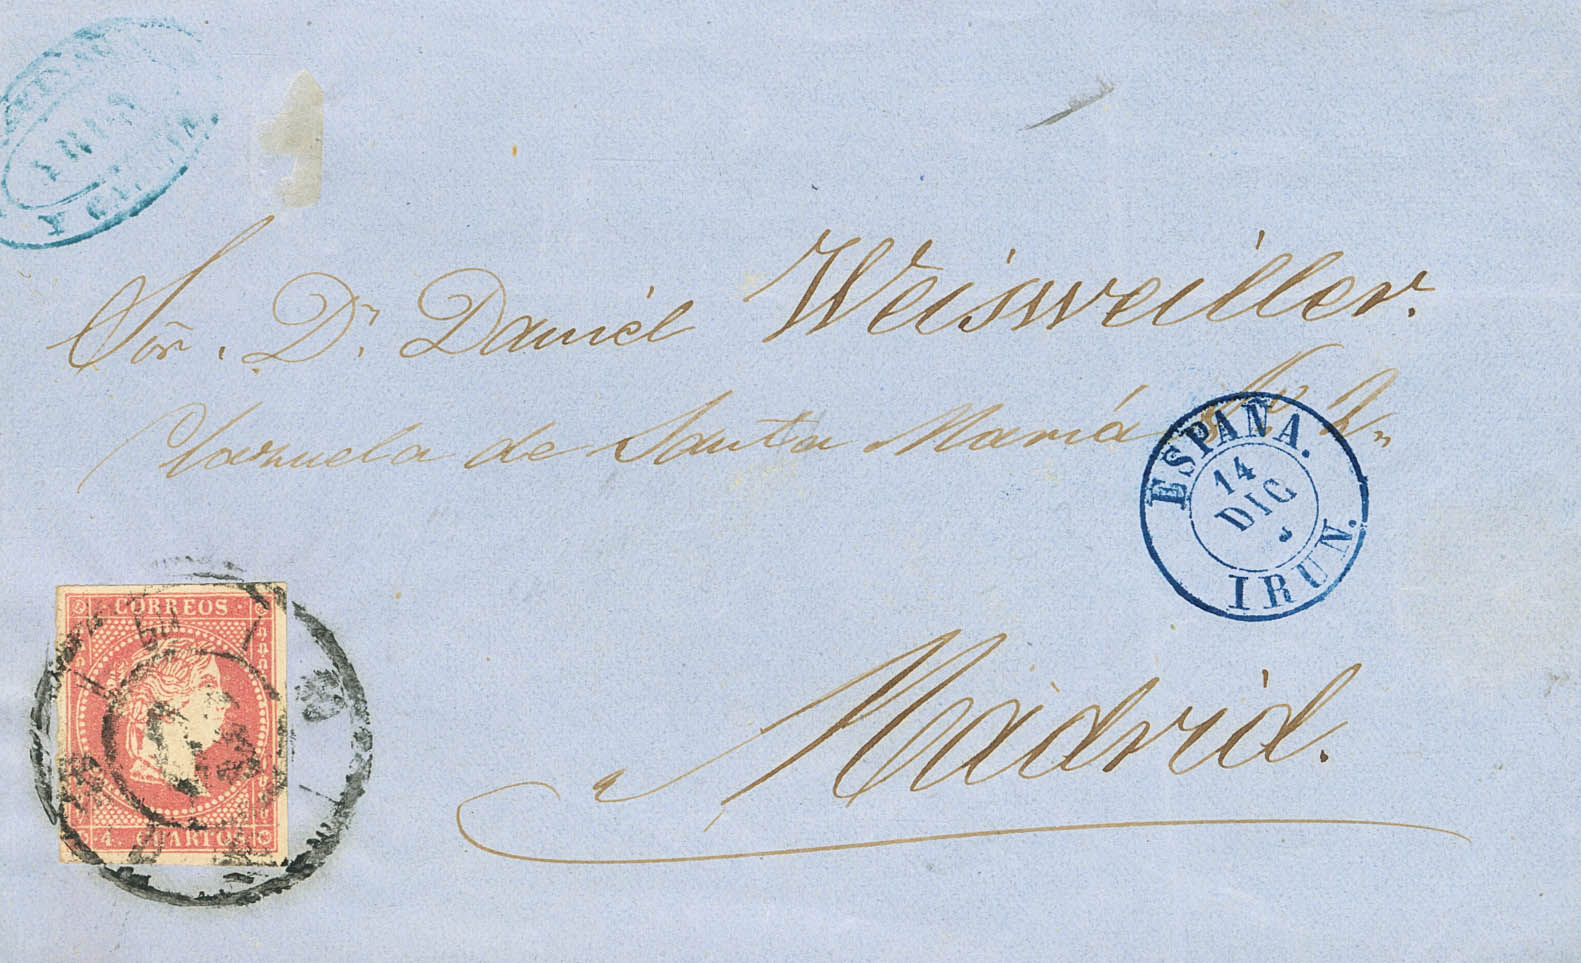 YRUN
Sōr. Dn. Daniel Weisweiller.
Plazuela de Santa María No 2„
ESPAÑA.
14
DIC
IRUN.
CORREOS
4. CUARTOS
Madrid.